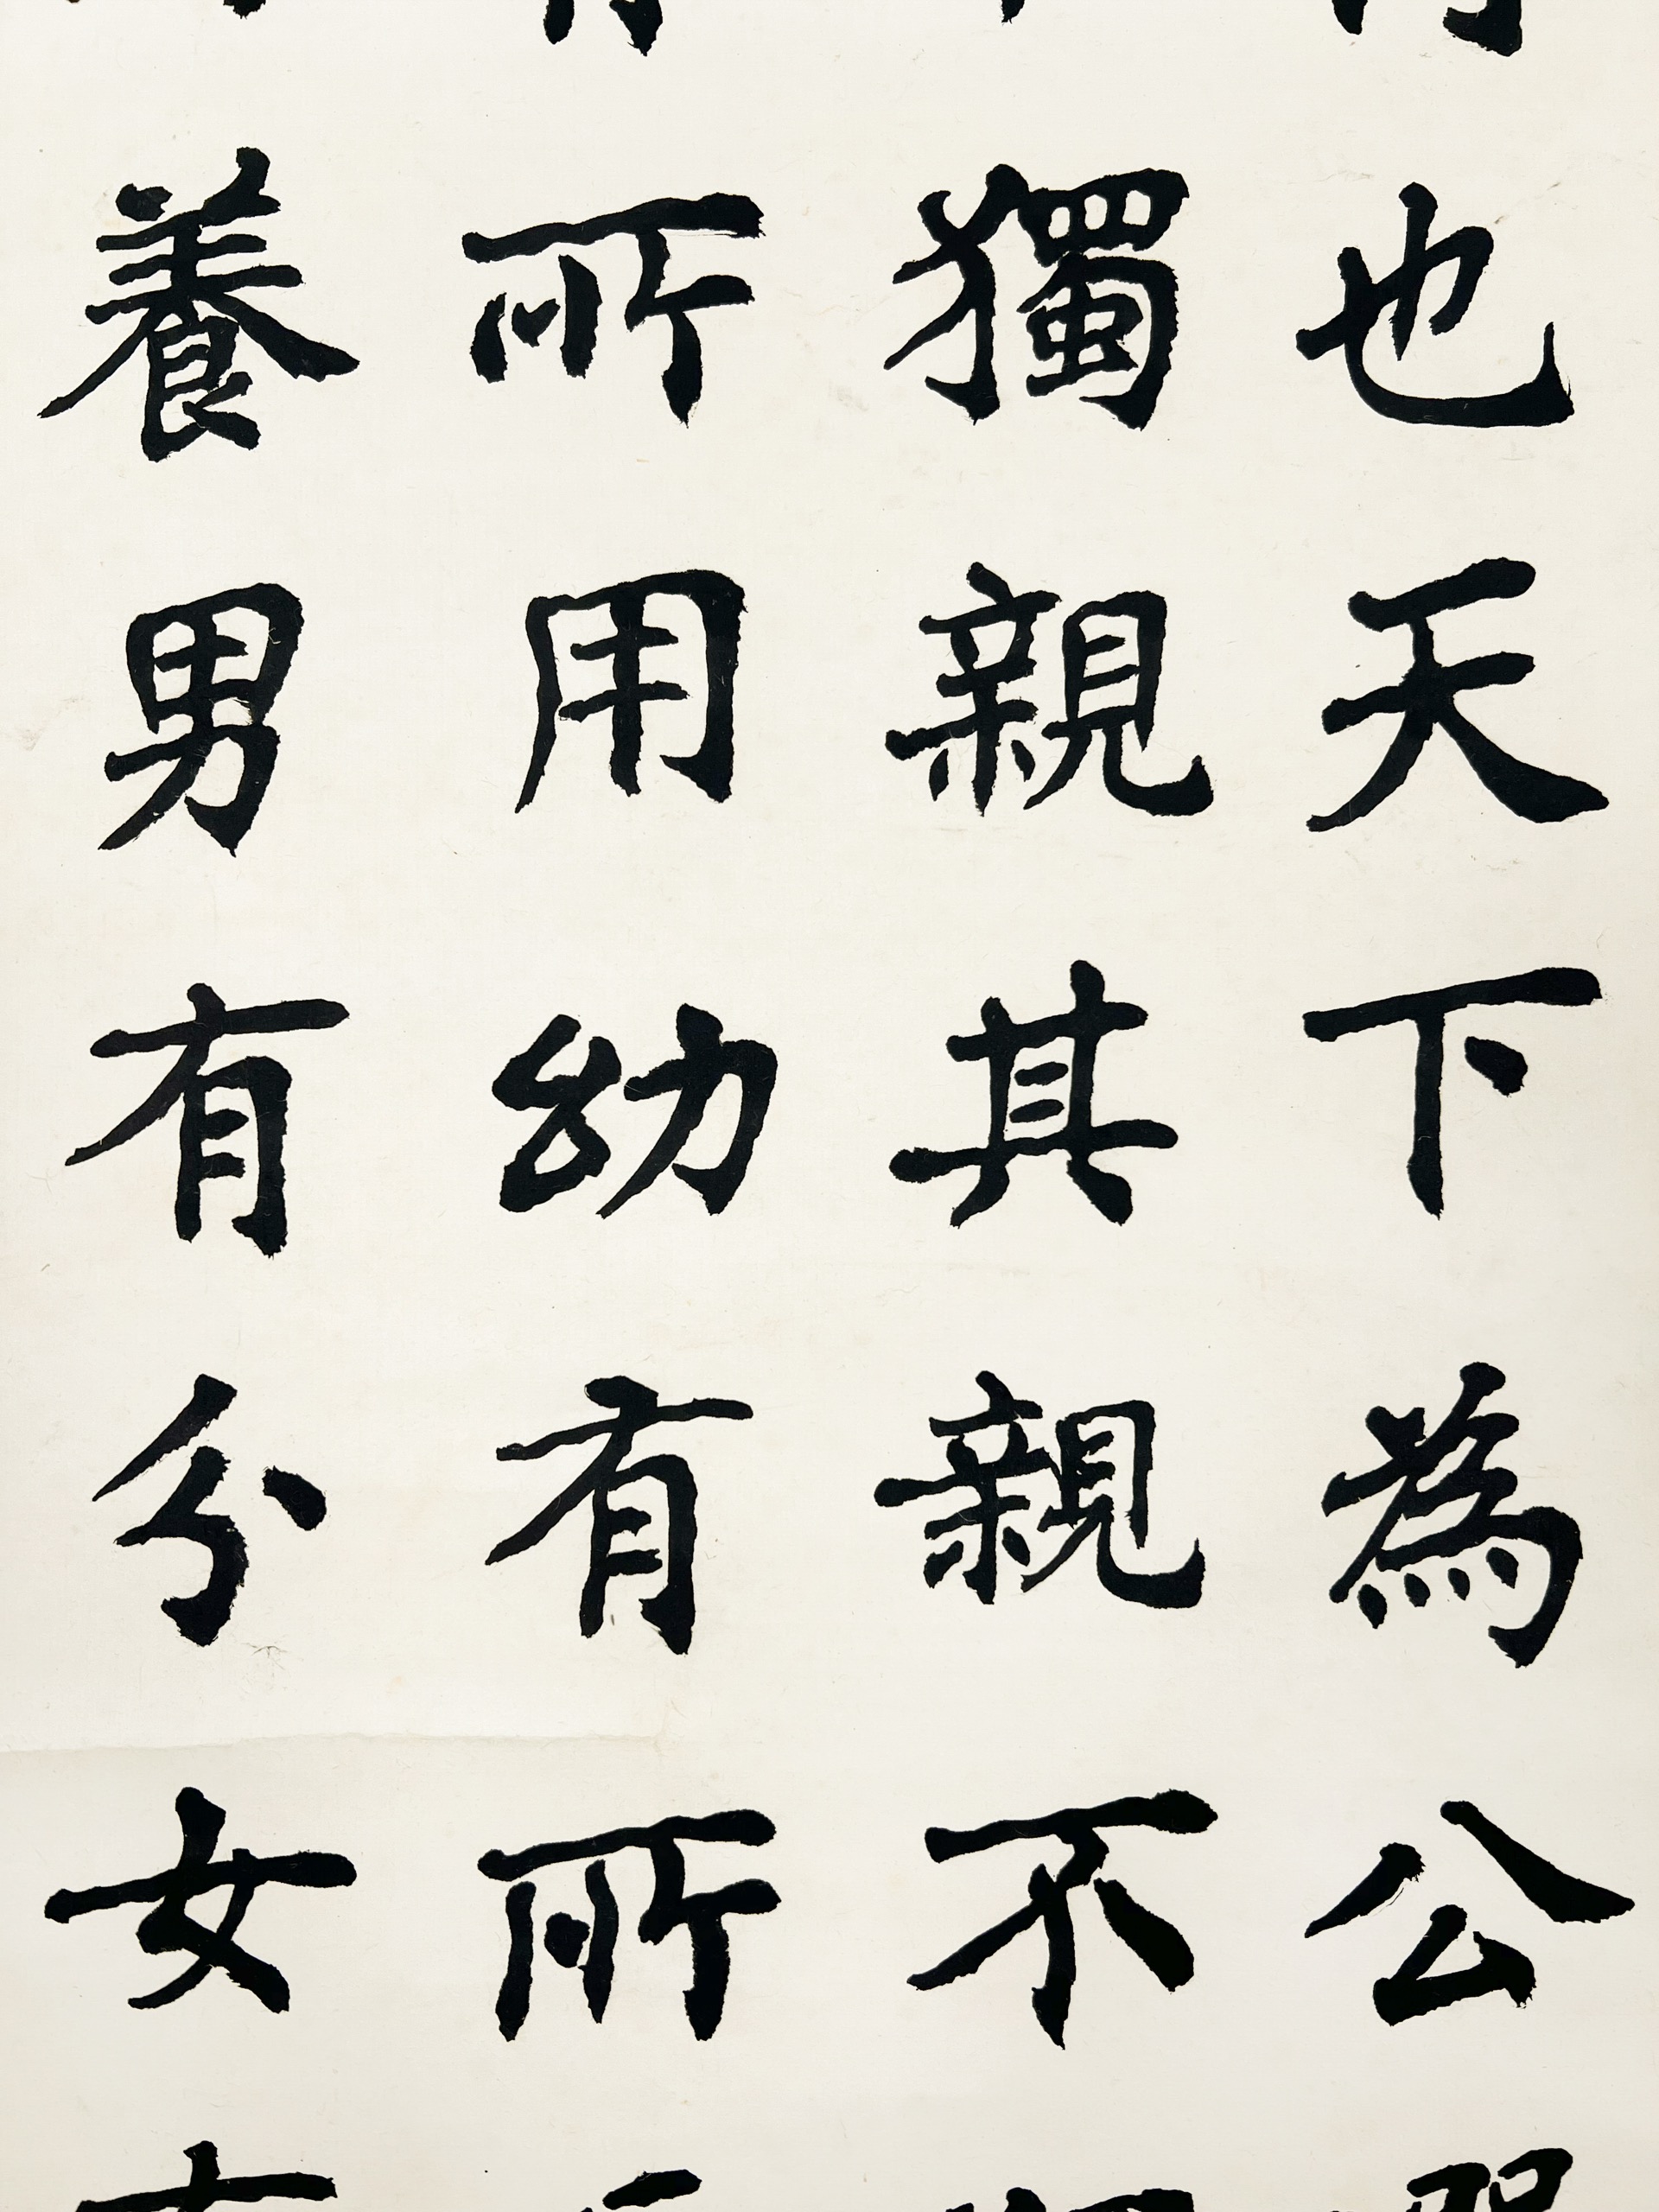 也天下為公
獨親其親不
所用幼有所
養男有分女